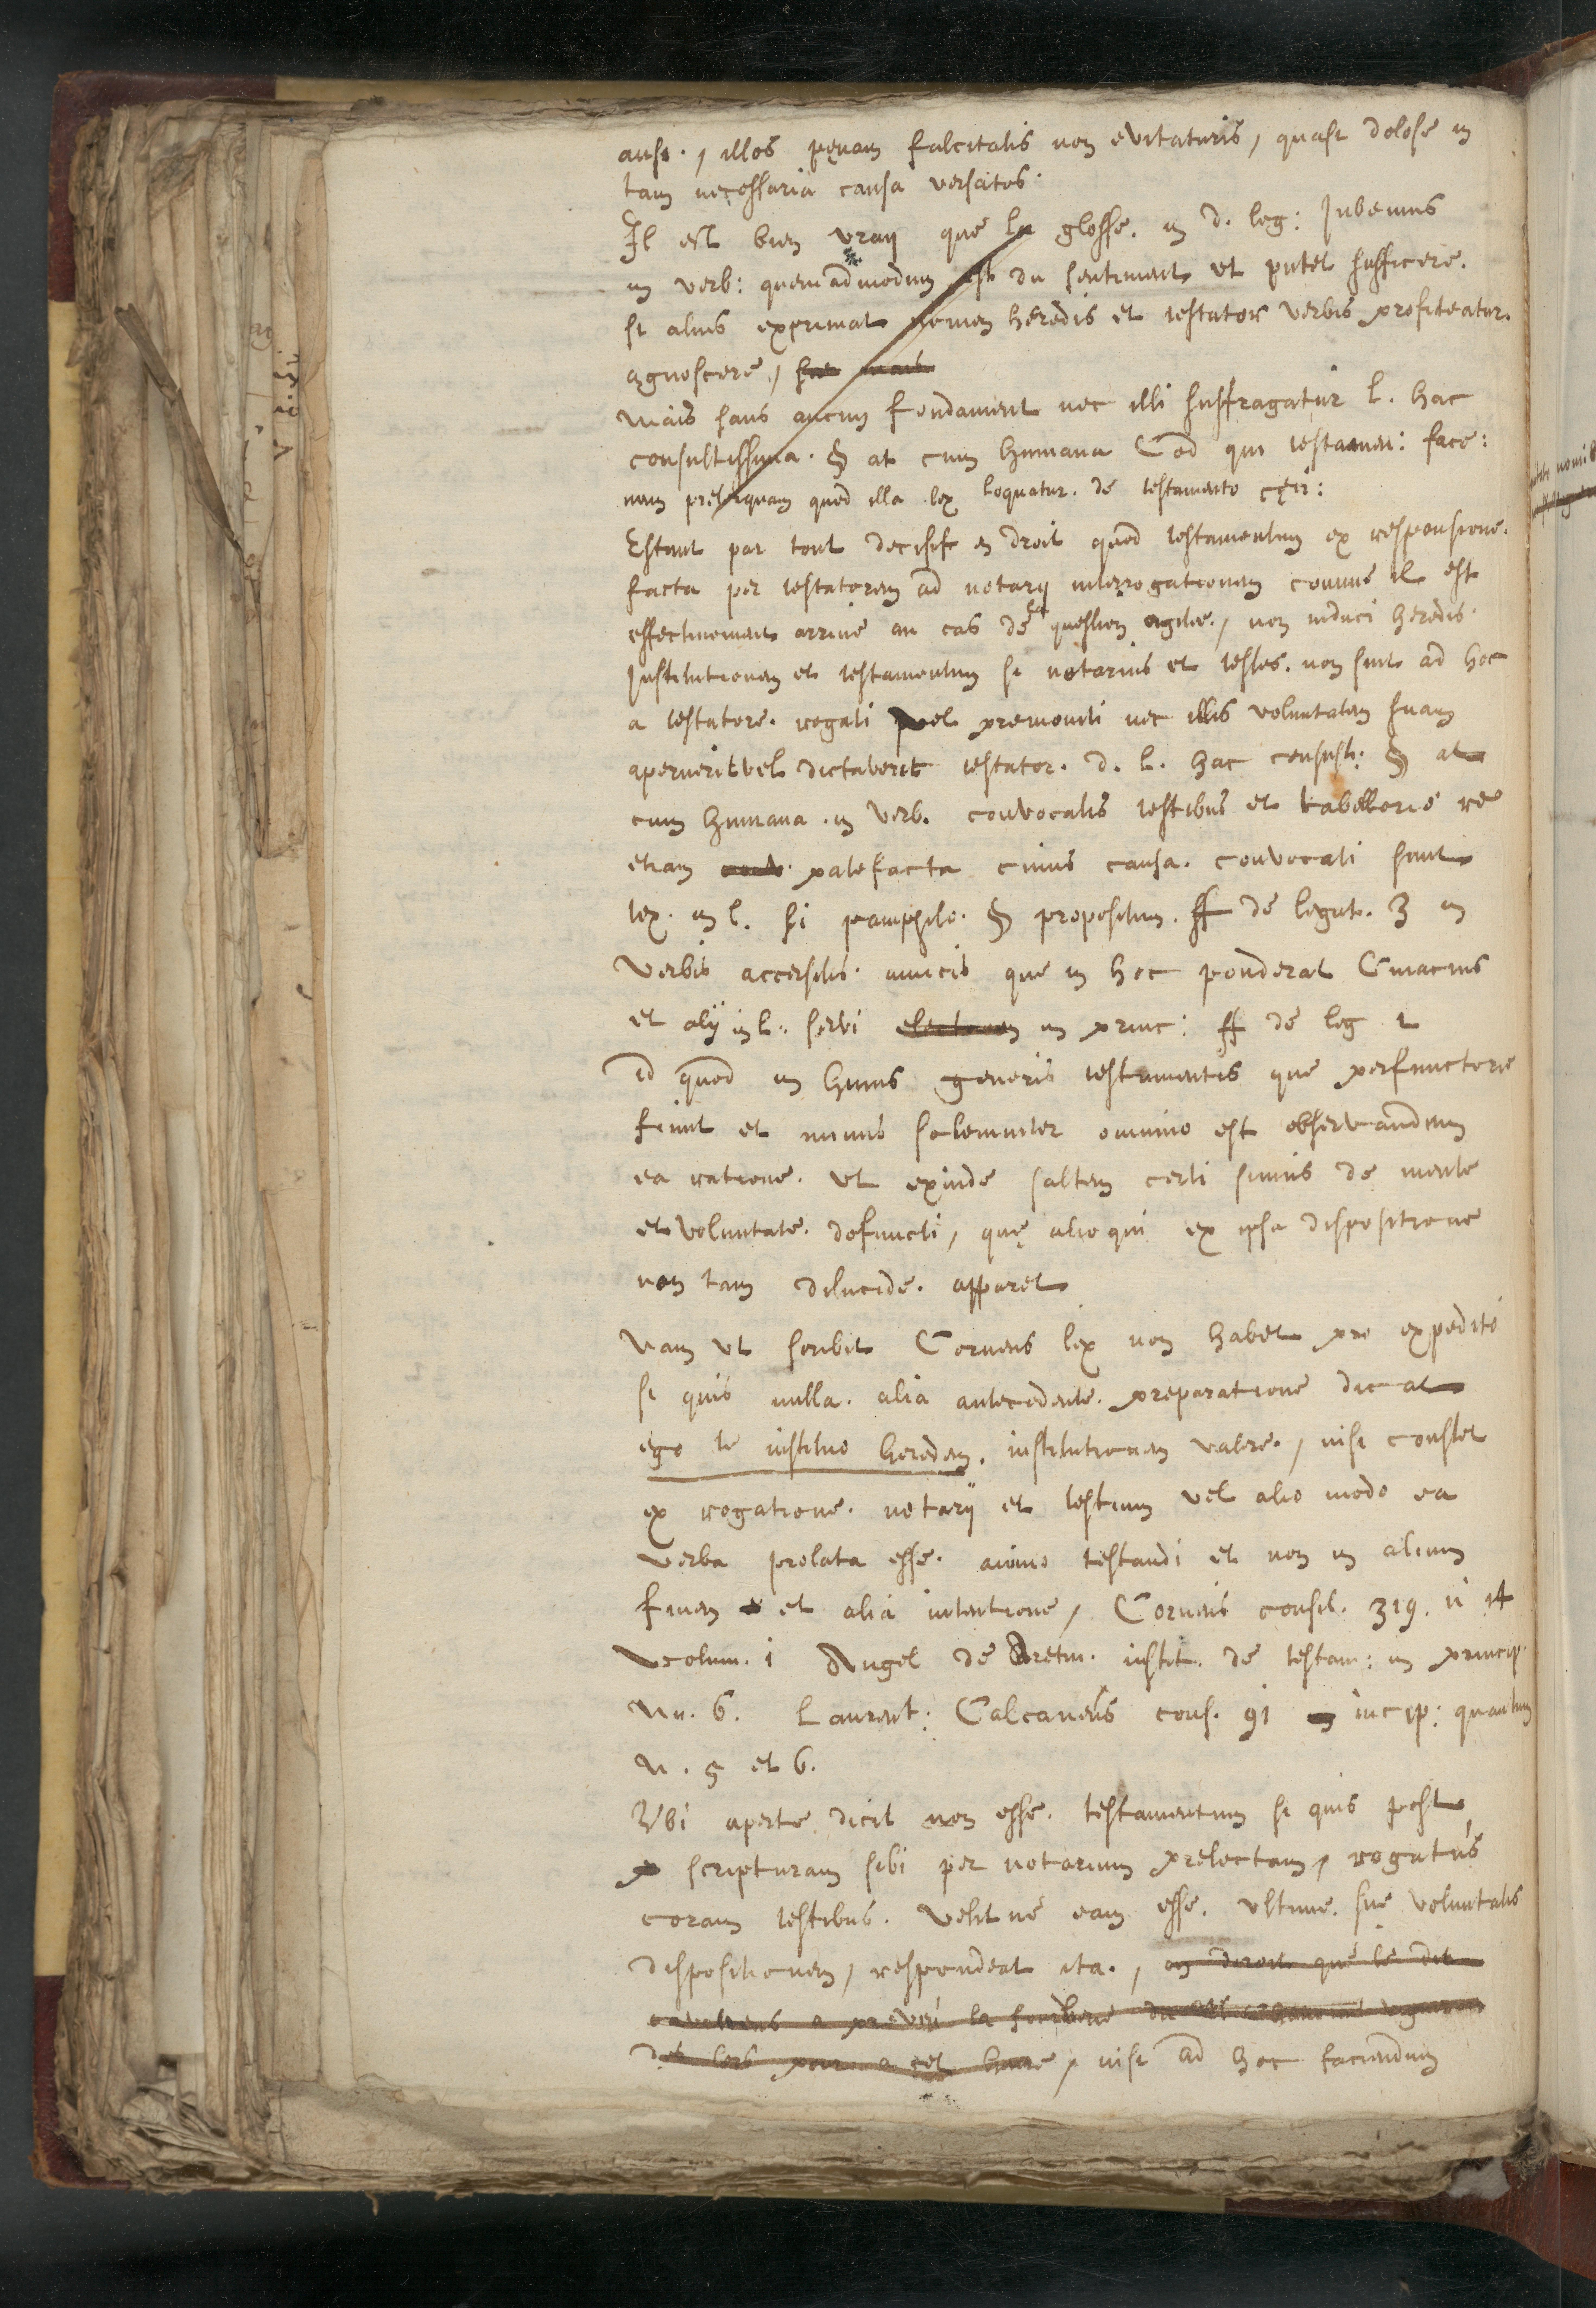 ausi., illos pęnam falcitatis non evitaturis, quasi dolose in
tam necessaria causa versatos.
Il est bien vray que la glosse. in d. leg: Jubemus
in verb: quemadmodum est du sentiment ut putet sufficere.
si alius exprimat nomen heredis et testator verbis profiteatur.
agnoscere,
mais sans aucun fondament nec illi suffragatur l. hac
consultissima. § at cum humana Cod qui testamen: face:
nam preterquam quod illa lex loquatur. de testamento cęci:
Estant par tout decisif en droit quod testamentum ex responsione.
facta per testatorem ad notarij interrogationem comme il est
effectivement arrivé au cas de la question agitée., non induci heredis.
Institutionem et testamentum si notarius et testes. non sint ad hoc
a testatore. rogati vel premoniti nec illis voluntatem suam
aperuerit vel dictaverit testator. d. l. hac consult: § at
cum humana. in verb. convocatis testibus et tabellario re
etiam patefacta cuius causa. convocati sunt
tex. in l. si pamphilo. § propositum. ff de legat. 3 in
verbis accersitis. amicis que in hoc ponderat Cuiacius
et alij in l. servi electionem in princ: ff de leg 1
id quod in huius generis testamentis que perfunctorie
fiunt et minus solemniter omnino est observandum
ea ratione. ut exinde saltem certi simus de mente
et voluntate. defuncti, quę alioqui ex ipsa dispositione
non tam dilucide. apparet
nam ut scribit Corneus lex non habet pro expedito
si quis nulla. alia antecedente. preparatione dicat
ego te instituo heredem. institutionem valere., nisi constet
ex rogatione. notarij et testium vel alio modo ea
verba prolata esse. animo testandi et non in alium
finem et alia intentione, Corneus consil. 319. n 14
volum. 1 Angel de Aretin. instit. de testam: in princip.
Nu. 6. Laurent: Calcaneus cons. 91 incip: quantum
N. 5 et 6.
Ubi aperte dicit non esse. testamentum si quis post
scripturam sibi per notarium prelectam, rogatus
coram testibus. velit ne eam esse. ultime. sue voluntatis
dispositionem, respondeat ita., on diroit que le dit
nisi ad hoc faciendum